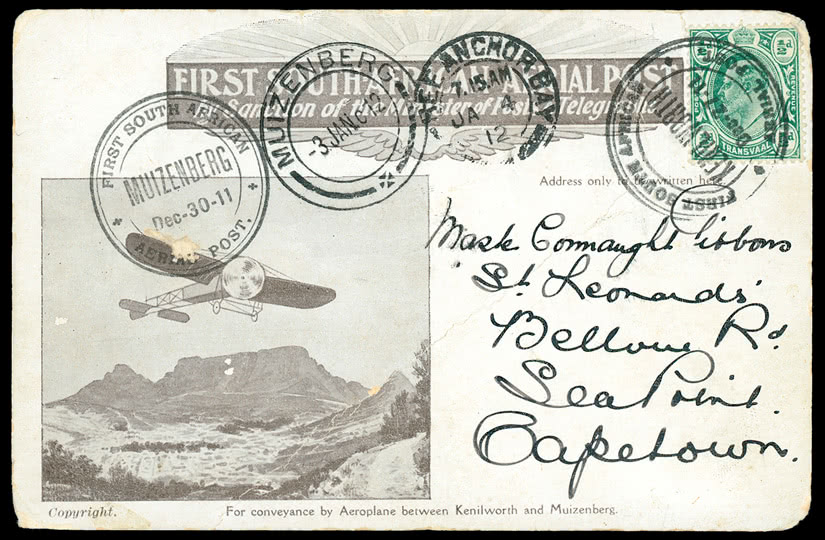 FIRST SOUTH AFRICAN AERIAL POST
Sanction of the Minister of Posts & Telegraphs
MUIZENBERG
3 JAN 12
THREE ANCHOR BAY
7.15 AM
JA 4
12
FIRST SOUTH AFRICAN
MUIZENBERG
Dec-30-11
AERIAL POST.
FIRST SOUTH AFRICAN
POSTAGE
REVENUE
½d
TRANSVAAL
Address only to be written here.
Connaught Gibbons
St Leonards
Bellevue Rd.
Sea Point.
Capetown.
Copyright.
For conveyance by Aeroplane between Kenilworth and Muizenberg.